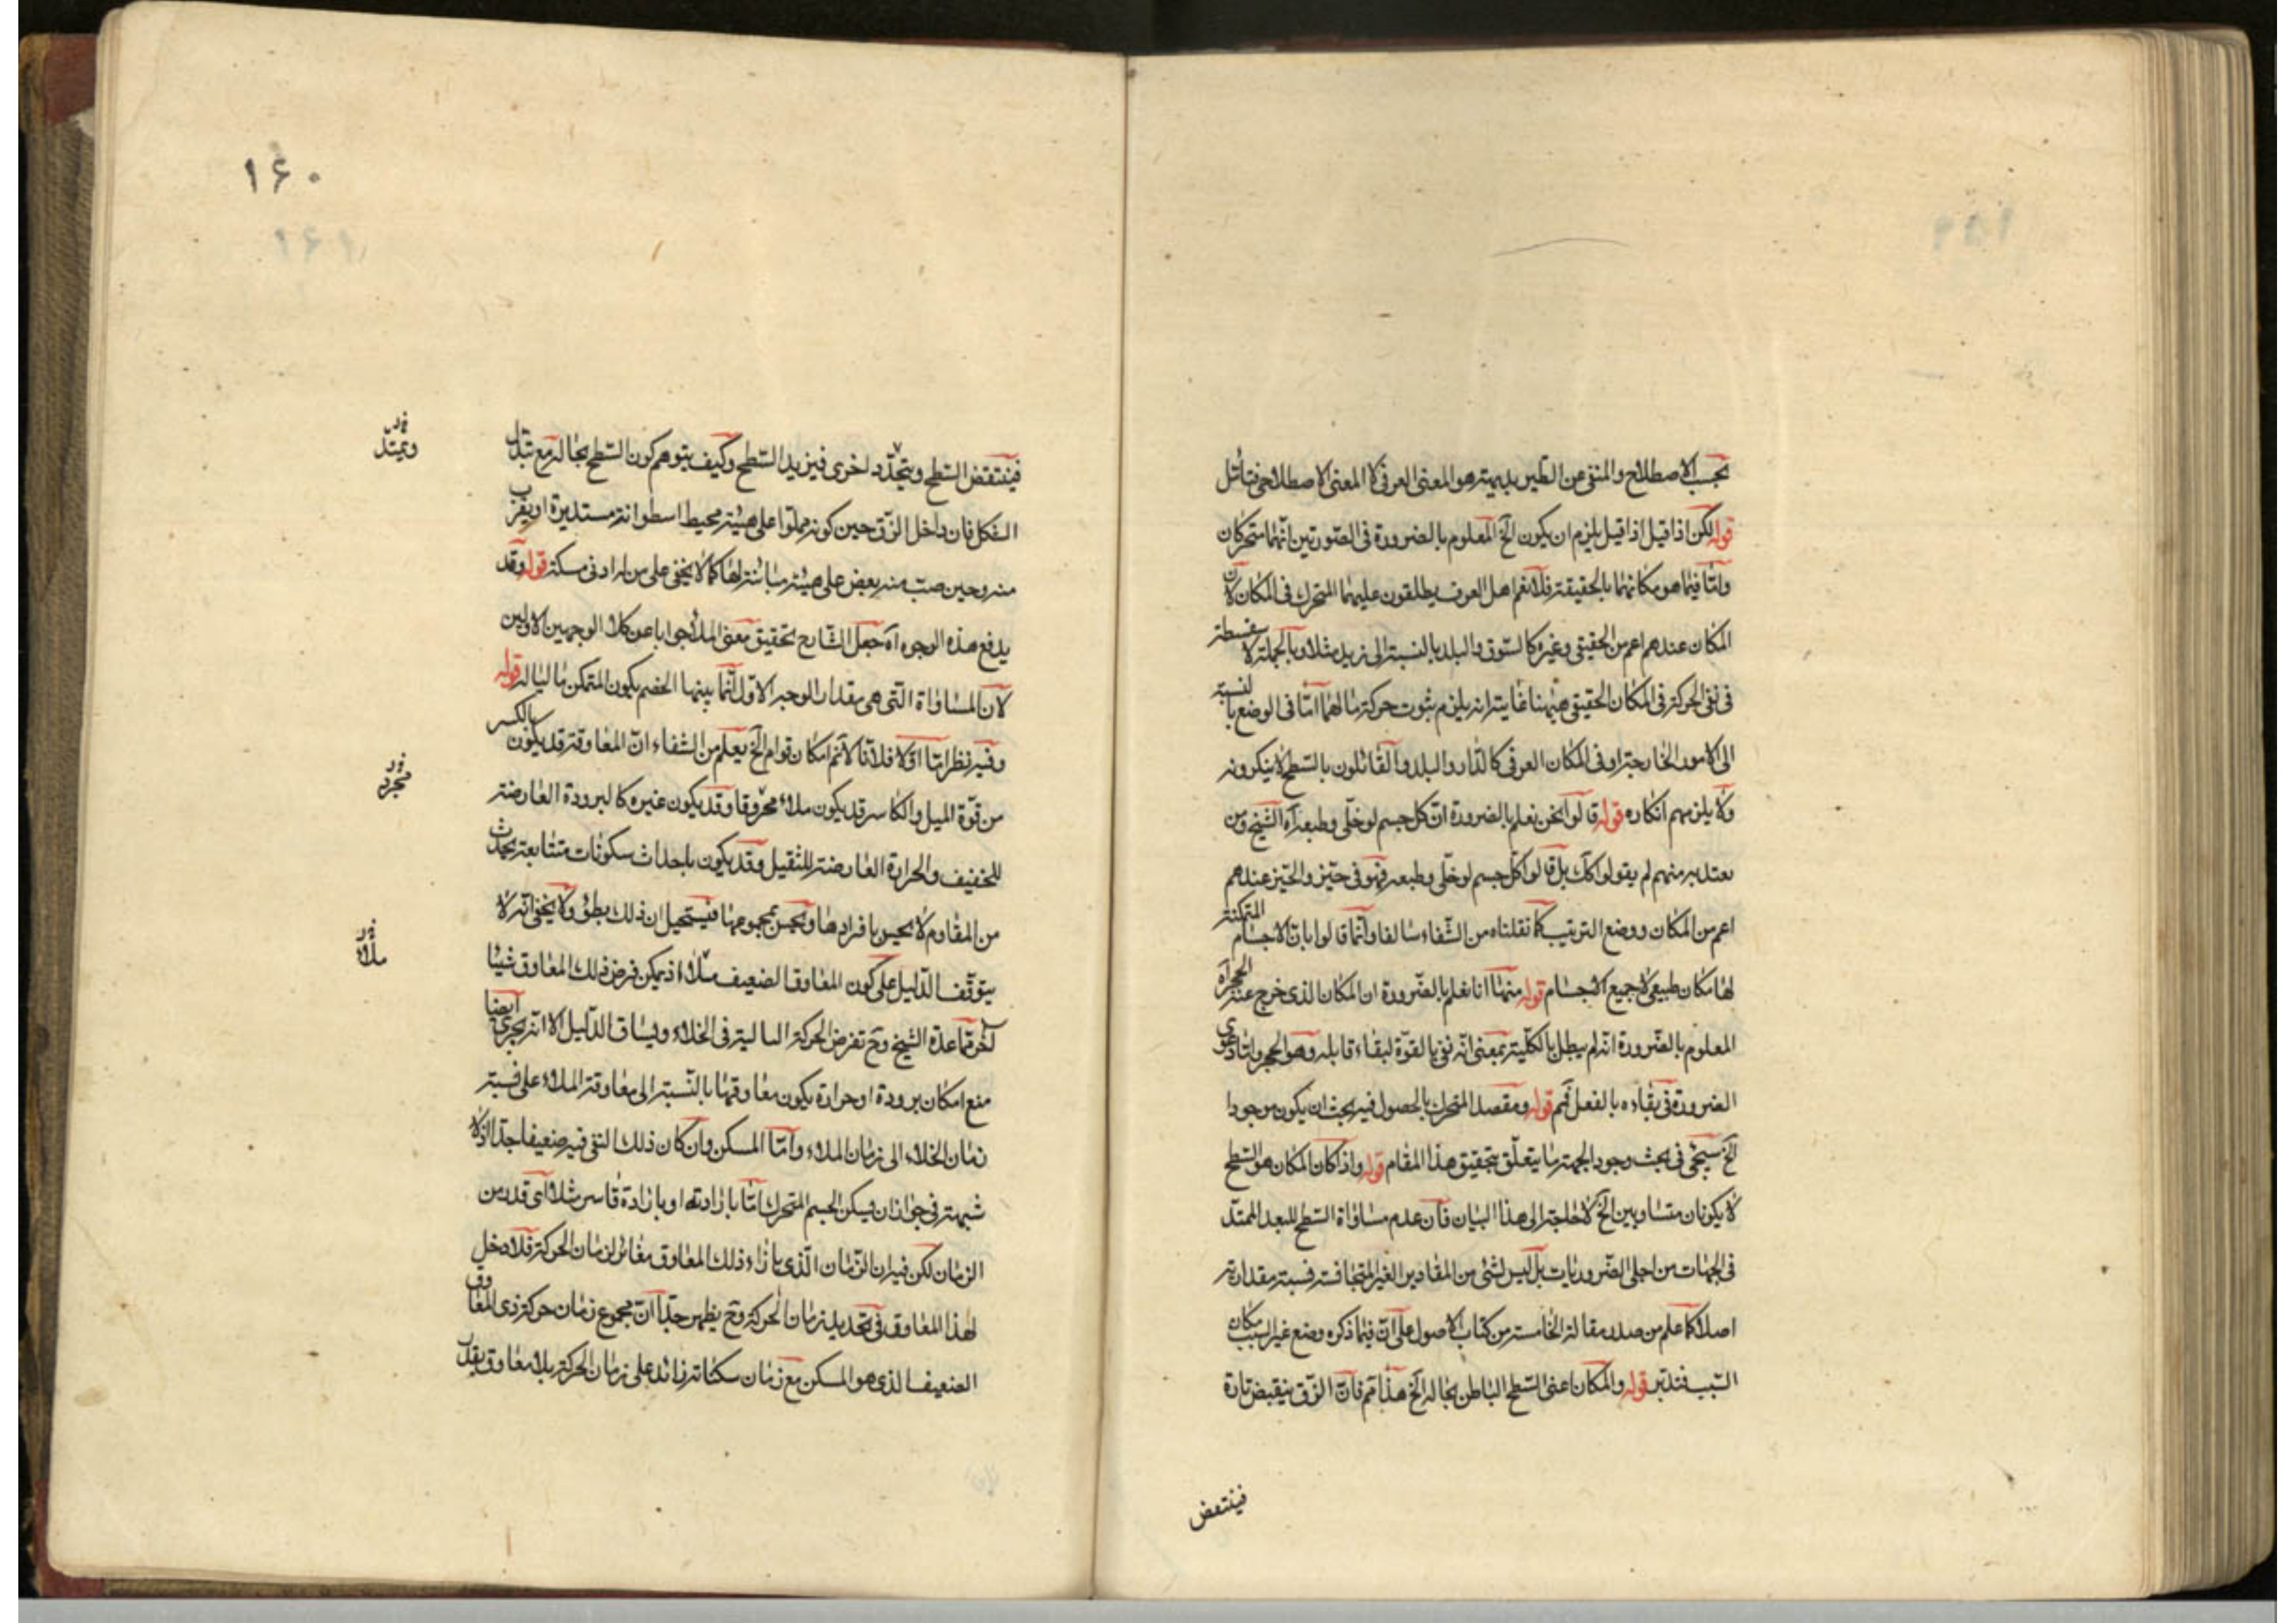 بحسب الاصطلاح والمنفى عن الطير بديهة هو المعنى العرفى لا المعنى الاصطلاحى فتأمل
قوله لكن اذا قيل اذا قيل يلزم ان يكون الخ المعلوم بالضرورة فى الصورتين انهما متحركان
واما فيما هو مكانهما بالحقيقة فلا نعم اهل العرف يطلقون عليهما المتحرك فى المكان لان
المكان عندهم اعم من الحقيقى وغيره كالسوق والبلد بالنسبة الى زيد مثلا وبالجملة لا سفسطة
فى نفى الحركة فى المكان الحقيقى ههنا غاية انه يلزم ثبوت حركة ما لهما اما فى الوضع بالنسبة
الى الامور الخارجة او فى المكان العرفى كالدار والبلد والقائلون بالسطح لا ينكرونه
ولا يلزمهم انكاره قوله قالوا نحن نعلم بالضرورة ان كل جسم لو خلى وطبعه آه الشيخ ومن
يعتد به منهم لم يقولوا كك بل قالوا كل جسم لو خلى وطبعه فهو فى حيز والحيز عندهم
اعم من المكان ووضع الترتيب كما نقلناه من الشفاء سالفا وانما قالوا بان الاجسام المتمكنة
لها مكان طبيعى لا جميع الاجسام قوله منها انا نعلم بالضرورة ان المكان الذى خرج عنه الحجر آه
المعلوم بالضرورة انه لم يبطل بالكلية بمعنى انه بقى بالقوة لبقاء قابله وهو الحجر واما دعوى
الضرورة فى بقاءه بالفعل فمم قوله ومقصد المتحرك بالحصول فيه يجب ان يكون موجودا
الخ سيجئ فى بحث وجود الجهة ما يتعلق بتحقيق هذا المقام قوله واذا كان المكان هو السطح
لا يكونان متساويين الخ لا حاجة الى هذا البيان فان عدم مساواة السطح للبعد الممتد
فى الجهات من اجلى الضروريات بل ليس لشئ من المقادير الغير المتجانسة نسبة مقدارية
اصلا كما علم من صدر مقالة الخامسة من كتاب الاصول على ان فيما ذكره وضع غير السبب مكان
السبب فتدبر قوله والمكان اعنى السطح الباطن بحاله الخ هذا مم فان الزق ينقبض تارة
فينتقض
١۶٠
١۶١
فينتقض السطح ويتجدد اخرى فيزيد السطح وكيف يتوهم كون السطح بحاله مع تبدل
ويمتد
الشكل فان داخل الزق حين كونه مملوا على هيئة محيط اسطوانة مستديرة او يقرب
منه وحين صب منه بعض على هيئة مباينة لها كما لا يخفى على من له ادنى مسكة قوله وقد
يدفع هذه الوجوه آه جعل الشارح تحقيق معنى الملأ جوابا عن كلا الوجهين الاولين
لان المساواة التى هى مقدمات الوجه الاول انما بينها الخصم بكون المتمكن ماليا له قوله
وفيه نظر اما اولا فلانا لا نم امكان قوام الخ يعلم من الشفاء ان المعاوقة قد يكون بالكسر
من قوة الميل والكاسر قد يكون ملاء محروقا وقد يكون غيره كالبرودة العارضة
مجرد
للخفيف والحرارة العارضة للثقيل وقد يكون باحداث سكونات متتابعة يحدث
من المقاوم لا يحس بافرادها ويحس بمجموعها فيستحيل ان ذلك بطؤ ولا يخفى انه لا
يتوقف الدليل على كون المعاوق الضعيف ملاء اذ يمكن فرض ذلك المعاوق شيئا
ملاء
آخر مما عده الشيخ وح تفرض الحركة السالية فى الخلاء ويساق الدليل الا انه يجرى ايضا
منع امكان برودة او حرارة يكون معاوقتها بالنسبة الى معاوقة الملاء على نسبة
زمان الخلاء الى زمان الملاء واما المسكن وان كان ذلك النفى فيه ضعيفا جدا اذ لا
شبهة فى جواز ان يسكن الجسم المتحرك اما بارادته او بارادة قاسر مثلا اى قدر من
الزمان لكن فيه ان الزمان الذى بازاء ذلك المعاوق مغائر لزمان الحركة فلا دخل
لهذا المعاوق فى تحديد زمان الحركة وح يظهر جدا ان مجموع زمان حركة ذى المعاوق
الضعيف الذى هو المسكن مع زمان سكناته زائد على زمان الحركة بلا معاوق بقدر